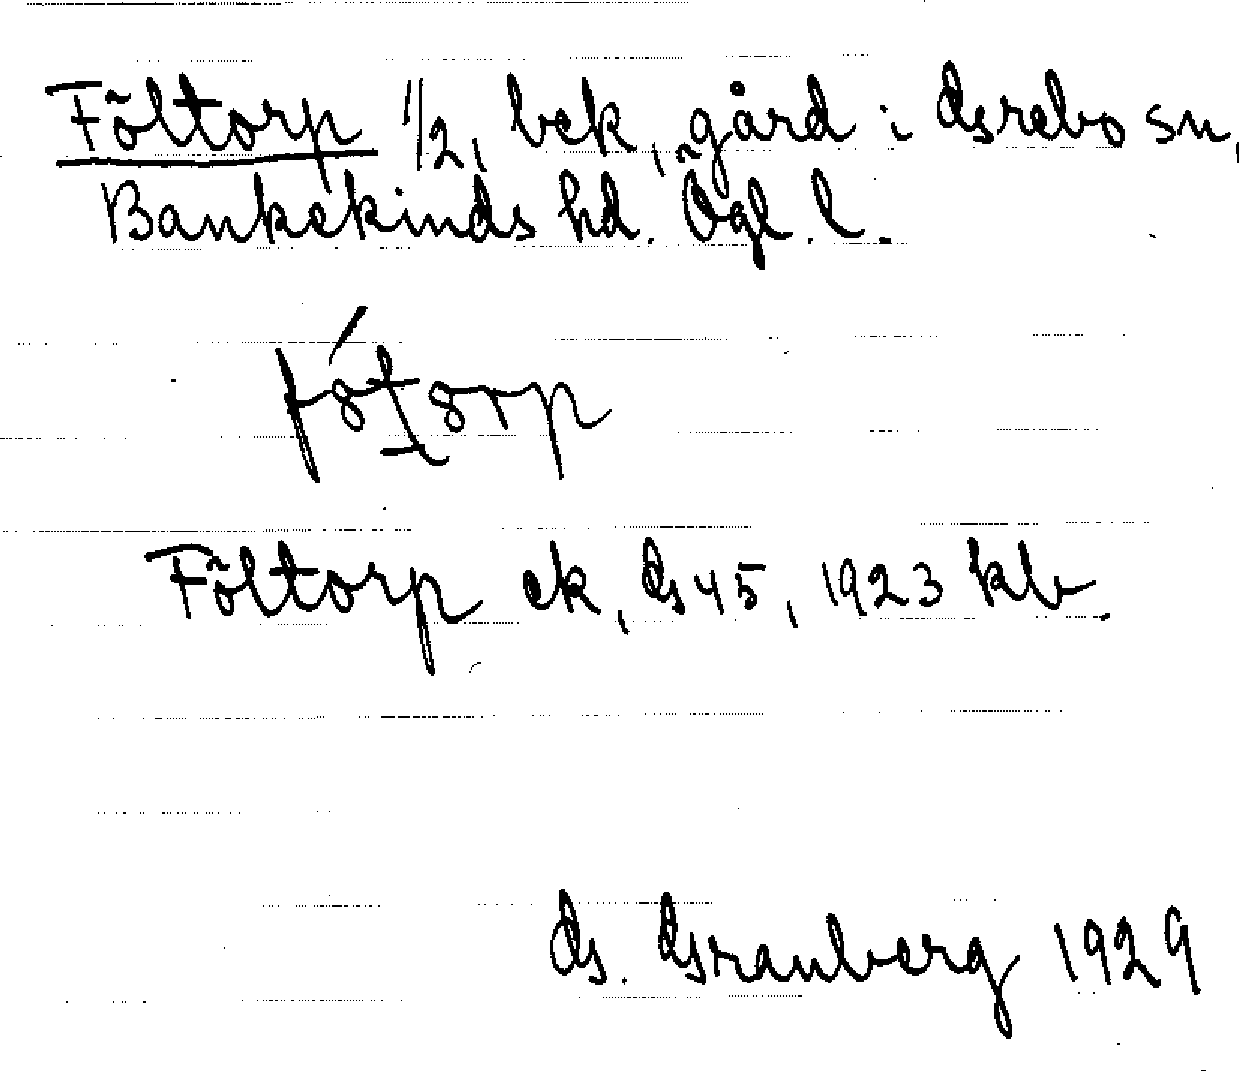 Föltorp 1/2, bek, gård i Grebo sn,
Bankekinds hd. Ögl. l.
Föltorp ek, G 45, 1923 klv.
G. Granberg 1929